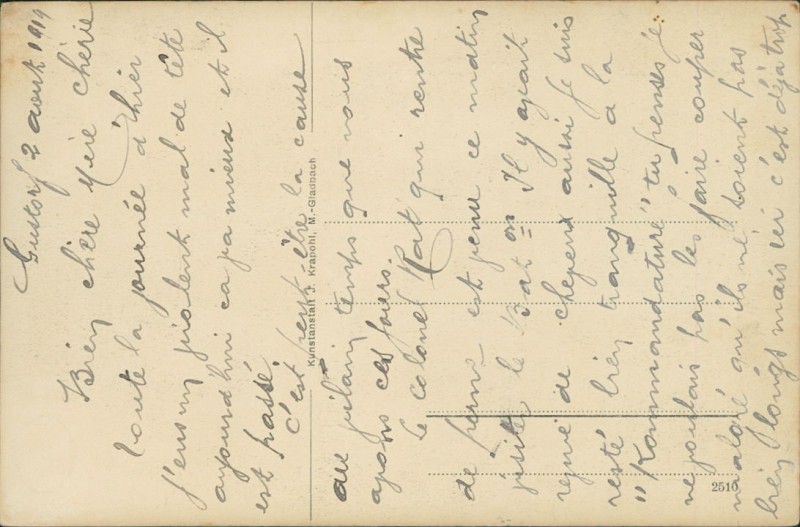 Gustorf 2 aout 1919
Bien chère Mère chérie
Toute la journée d'hier
j'eus un violent mal de tête
aujourd'hui ca va mieux et il
est passé.
C'est peut-être la cause
du vilain temps que nous
avons ces jours.
Le colonel Rat qui rentre
de perm- est venu ce matin
visiter le Bat on Il y avait
revue de cheveux aussi je suis
resté bien tranquille a la
"Kommandature" tu penses je
ne voulais pas les faire couper
malgré qu'ils ne soient pas
bien longs mais ici c'est déjà trop
Kunstanstalt J. Krapohl, M.-Gladbach
2510